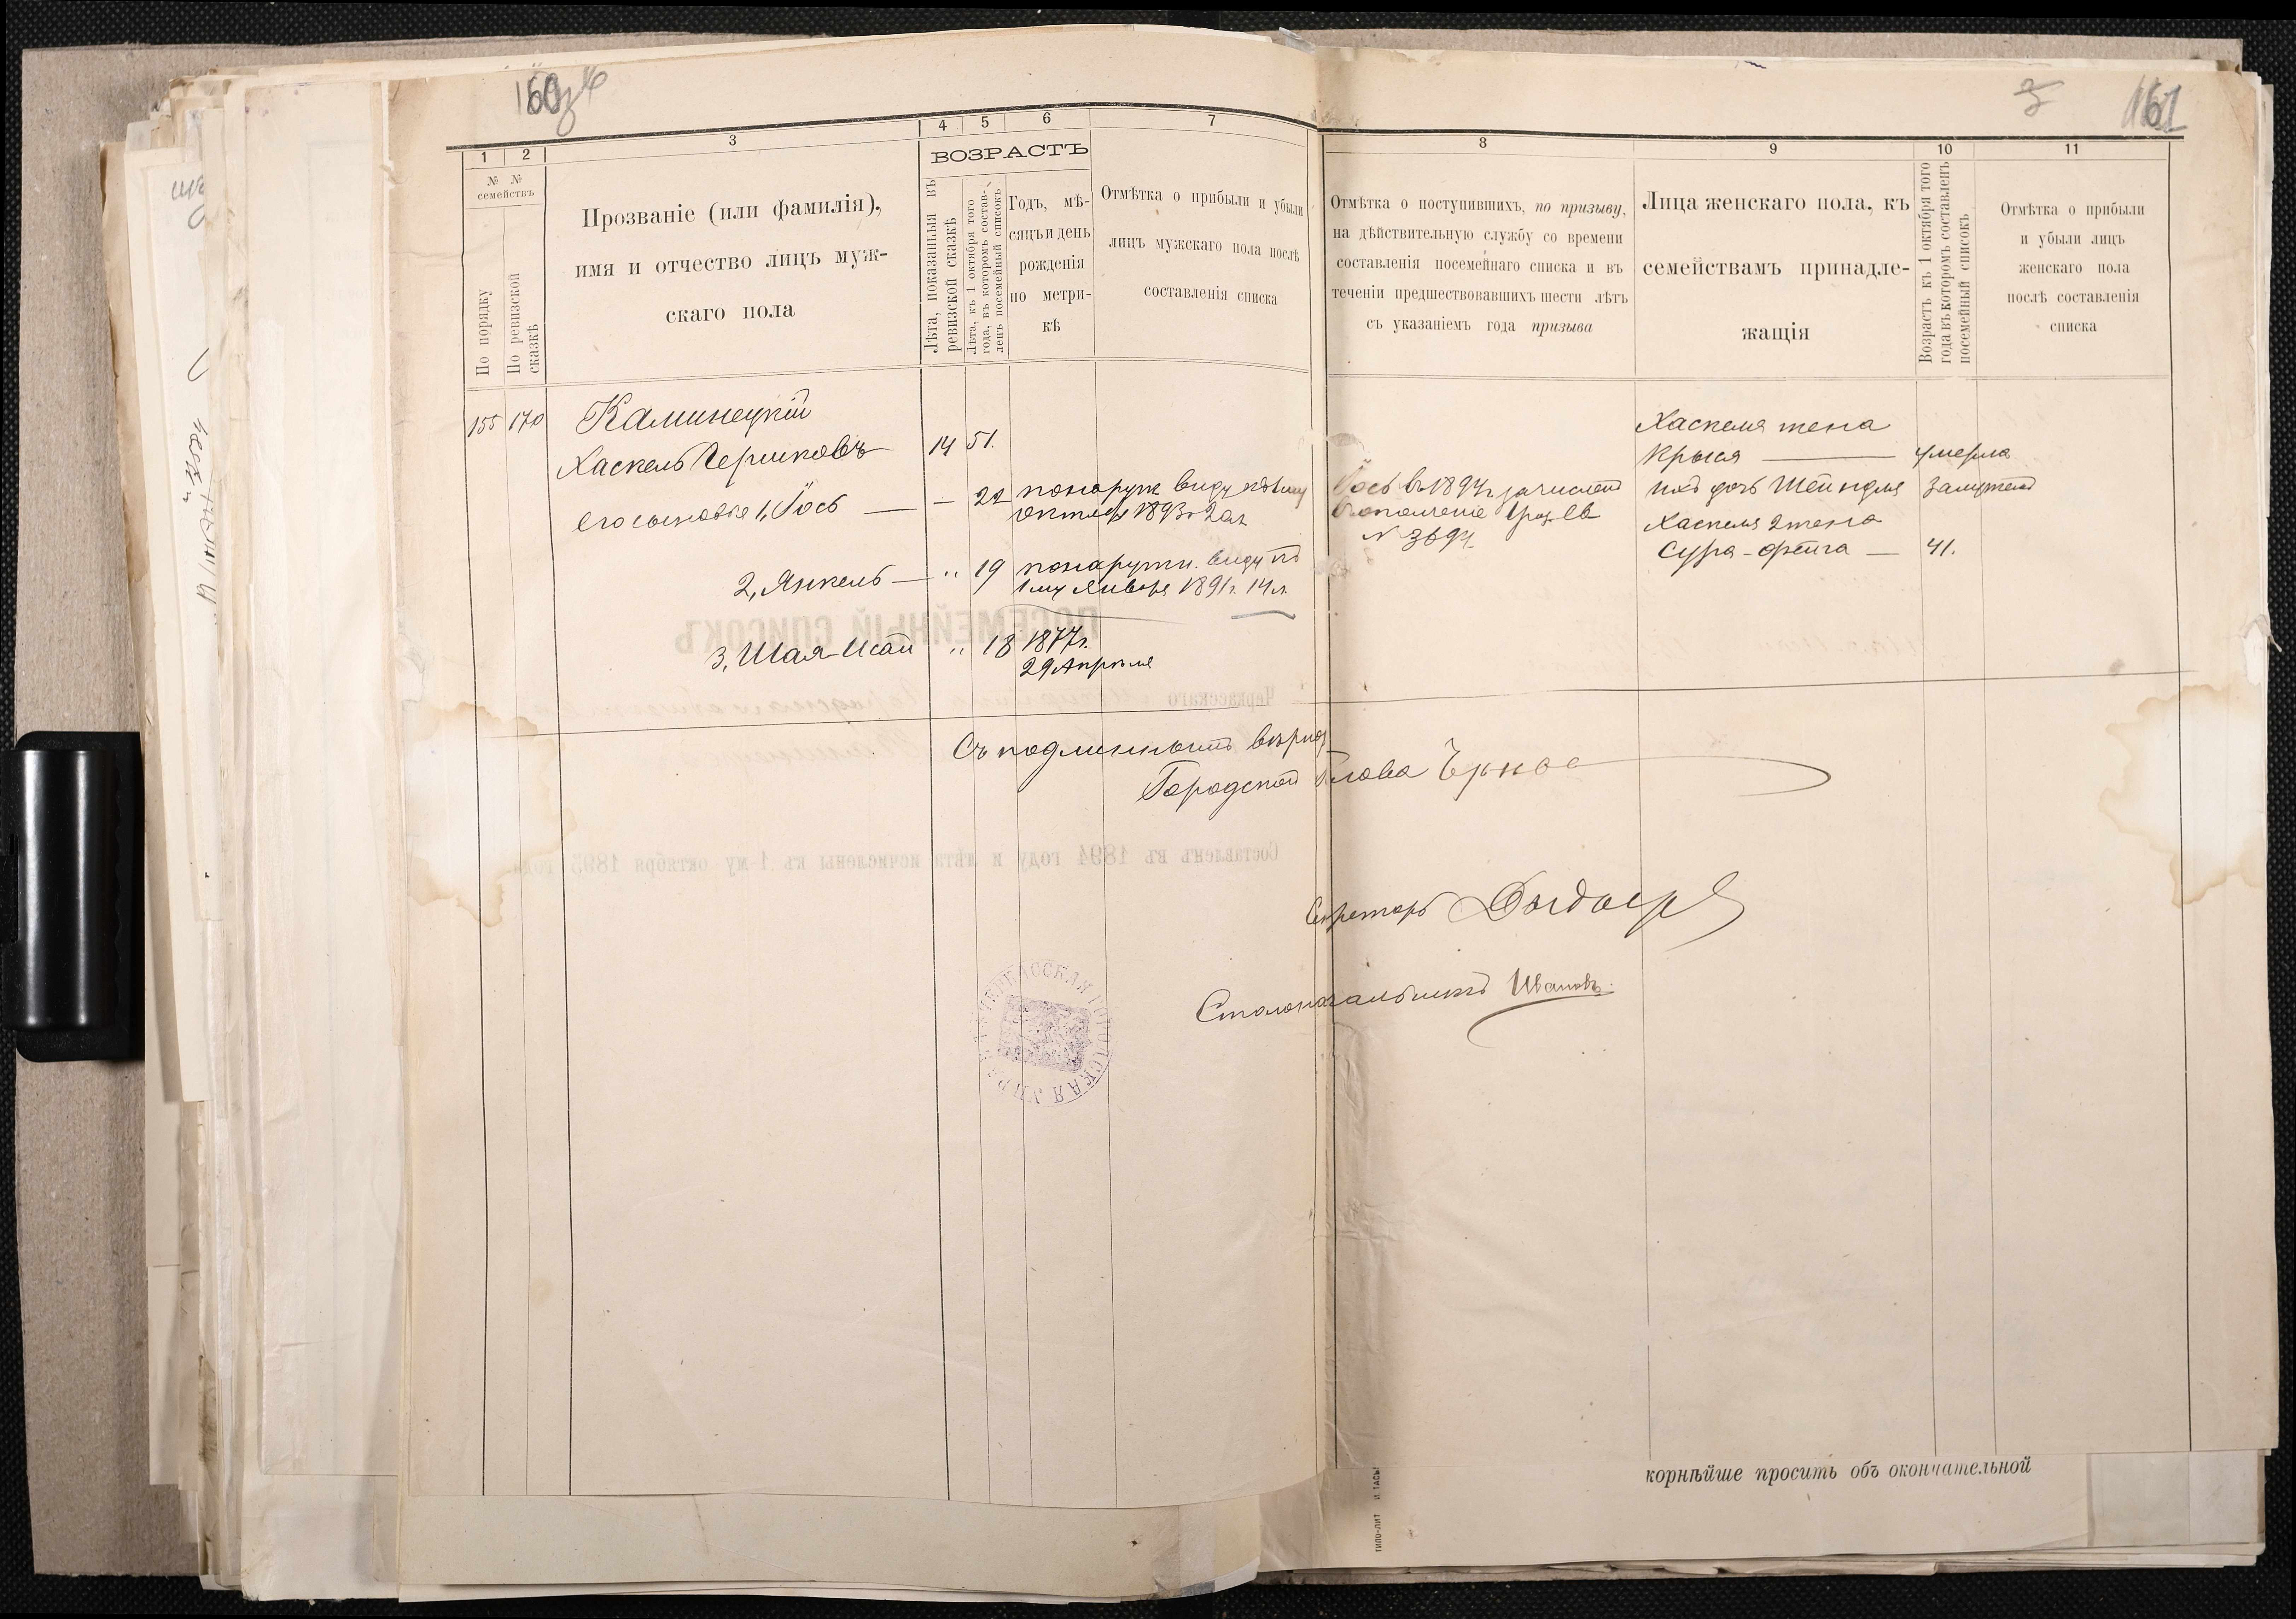 160
161
1
2
3
4
5
6
7
8
9
10
11
№ №
семействъ
По порядку
По ревизской
сказкѣ
Прозваніе (или фамилія),
имя и отчество лицъ муж-
скаго пола
ВОЗРАСТЪ
Лѣта, показанныя въ
ревизской сказкѣ
Лѣта, къ 1 октября того
года, въ которомъ состав-
ленъ посемейный списокъ
Годъ, мѣ-
сяцъ и день
рожденія
по метри-
кѣ
Отмѣтка о прибыли и убыли
лицъ мужскаго пола послѣ
составленія списка
Отмѣтка о поступившихъ, по призыву,
на дѣйствительную службу со времени
составленія посемейнаго списка и въ
теченіи предшествовавшихъ шести лѣтъ
съ указаніемъ года призыва
Лица женскаго пола, къ
семействамъ принадле-
жащія
Возрастъ къ 1 октября того
года въ которомъ составленъ
посемейный списокъ
Отмѣтка о прибыли
и убыли лицъ
женскаго пола
послѣ составленія
списка
155 170 Каминецкій
Хаскель Гершковъ 14 51.
его сыновья 1, Іось — — 22 по наруж виду къ 1 му
октября 1893 г 20 л
2, Янкель — " 19 по наружн. виду къ
1 му Января 1891 г. 14 л.
3, Шая-Исай " 18 1877 г.
29 Апреля
Іось въ 1894 г зачисленъ
въ ополченіе 1 раз. св
№ 3694
Хаскеля жена
Крыся — умерла
ихъ дочь Шейндля замужемъ
Хаскеля 2 жена
Сура-Фейга — 41.
Съ подлиннымъ вѣрно
Городской Голова
Секретарь
Столоначальникъ Ивановъ.
ПОСЕМЕЙНЫЙ СПИСОКЪ
Черкасскаго
Составленъ въ 1894 году и лѣта исчислены къ 1-му октября 1895 года
корнѣйше просить объ окончательной